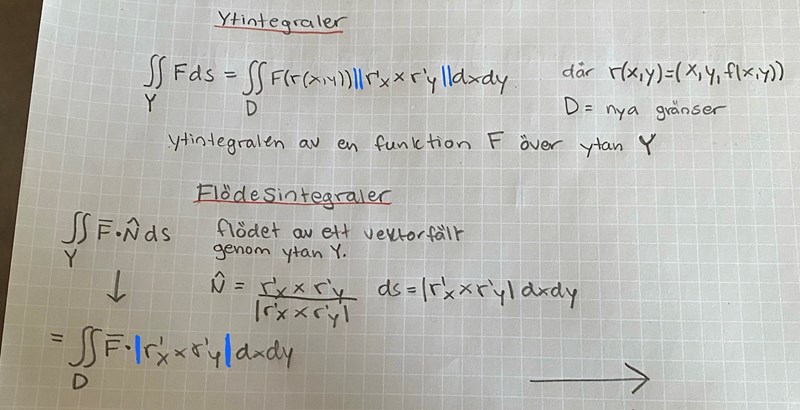 Ytintegraler
∬_Y Fds = ∬_D F(r(x,y))||r'x × r'y||dxdy där r(x,y)=(x,y,f(x,y))
D = nya gränser
ytintegralen av en funktion F över ytan Y
Flödesintegraler
∬_Y F̄·N̂ds flödet av ett vektorfält
genom ytan Y.
↓ N̂ = (r'x × r'y)/|r'x × r'y| ds=|r'x × r'y|dxdy
= ∬_D F̄·|r'x × r'y|dxdy
→